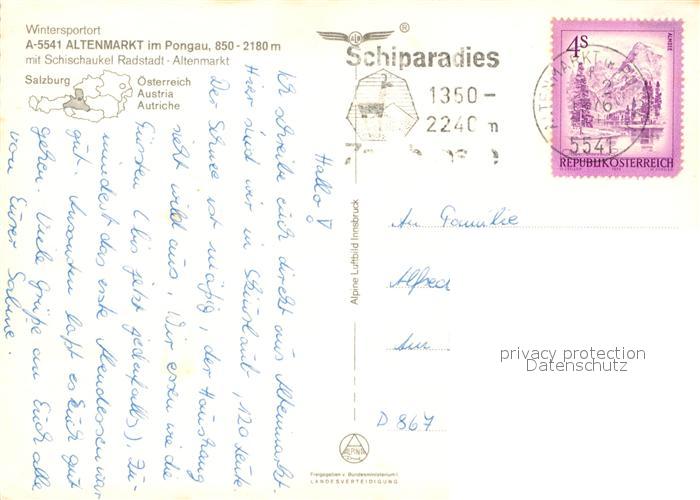 Wintersportort
A-5541 ALTENMARKT im Pongau, 850-2180 m
mit Schischaukel Radstadt - Altenmarkt
Salzburg
Österreich
Austria
Autriche
Hallo!
Ich schreibe euch direkt aus Altenmarkt.
Hier sind wir in Skiurlaub, 120 Leute.
Der Schnee ist mäßig, der Haushang
sieht wild aus. Wir essen wie die
Fürsten (bis jetzt jedenfalls). Zu-
mindest das erste Abendessen war
gut. Ansonsten hofft es Euch gut
gehen. Viele Grüße an Euch alle
von Eurer Sabine.
Alpine Luftbild Innsbruck
ALPINE
Freigegeben v. Bundesministerium f.
LANDESVERTEIDIGUNG
®
Schiparadies
1350 -
2240 m
ALTENMARKT IM
2
76
5541
4s
ALMSEE
REPUBLIK ÖSTERREICH
An Familie
Alfred
D 867
privacy protection
Datenschutz